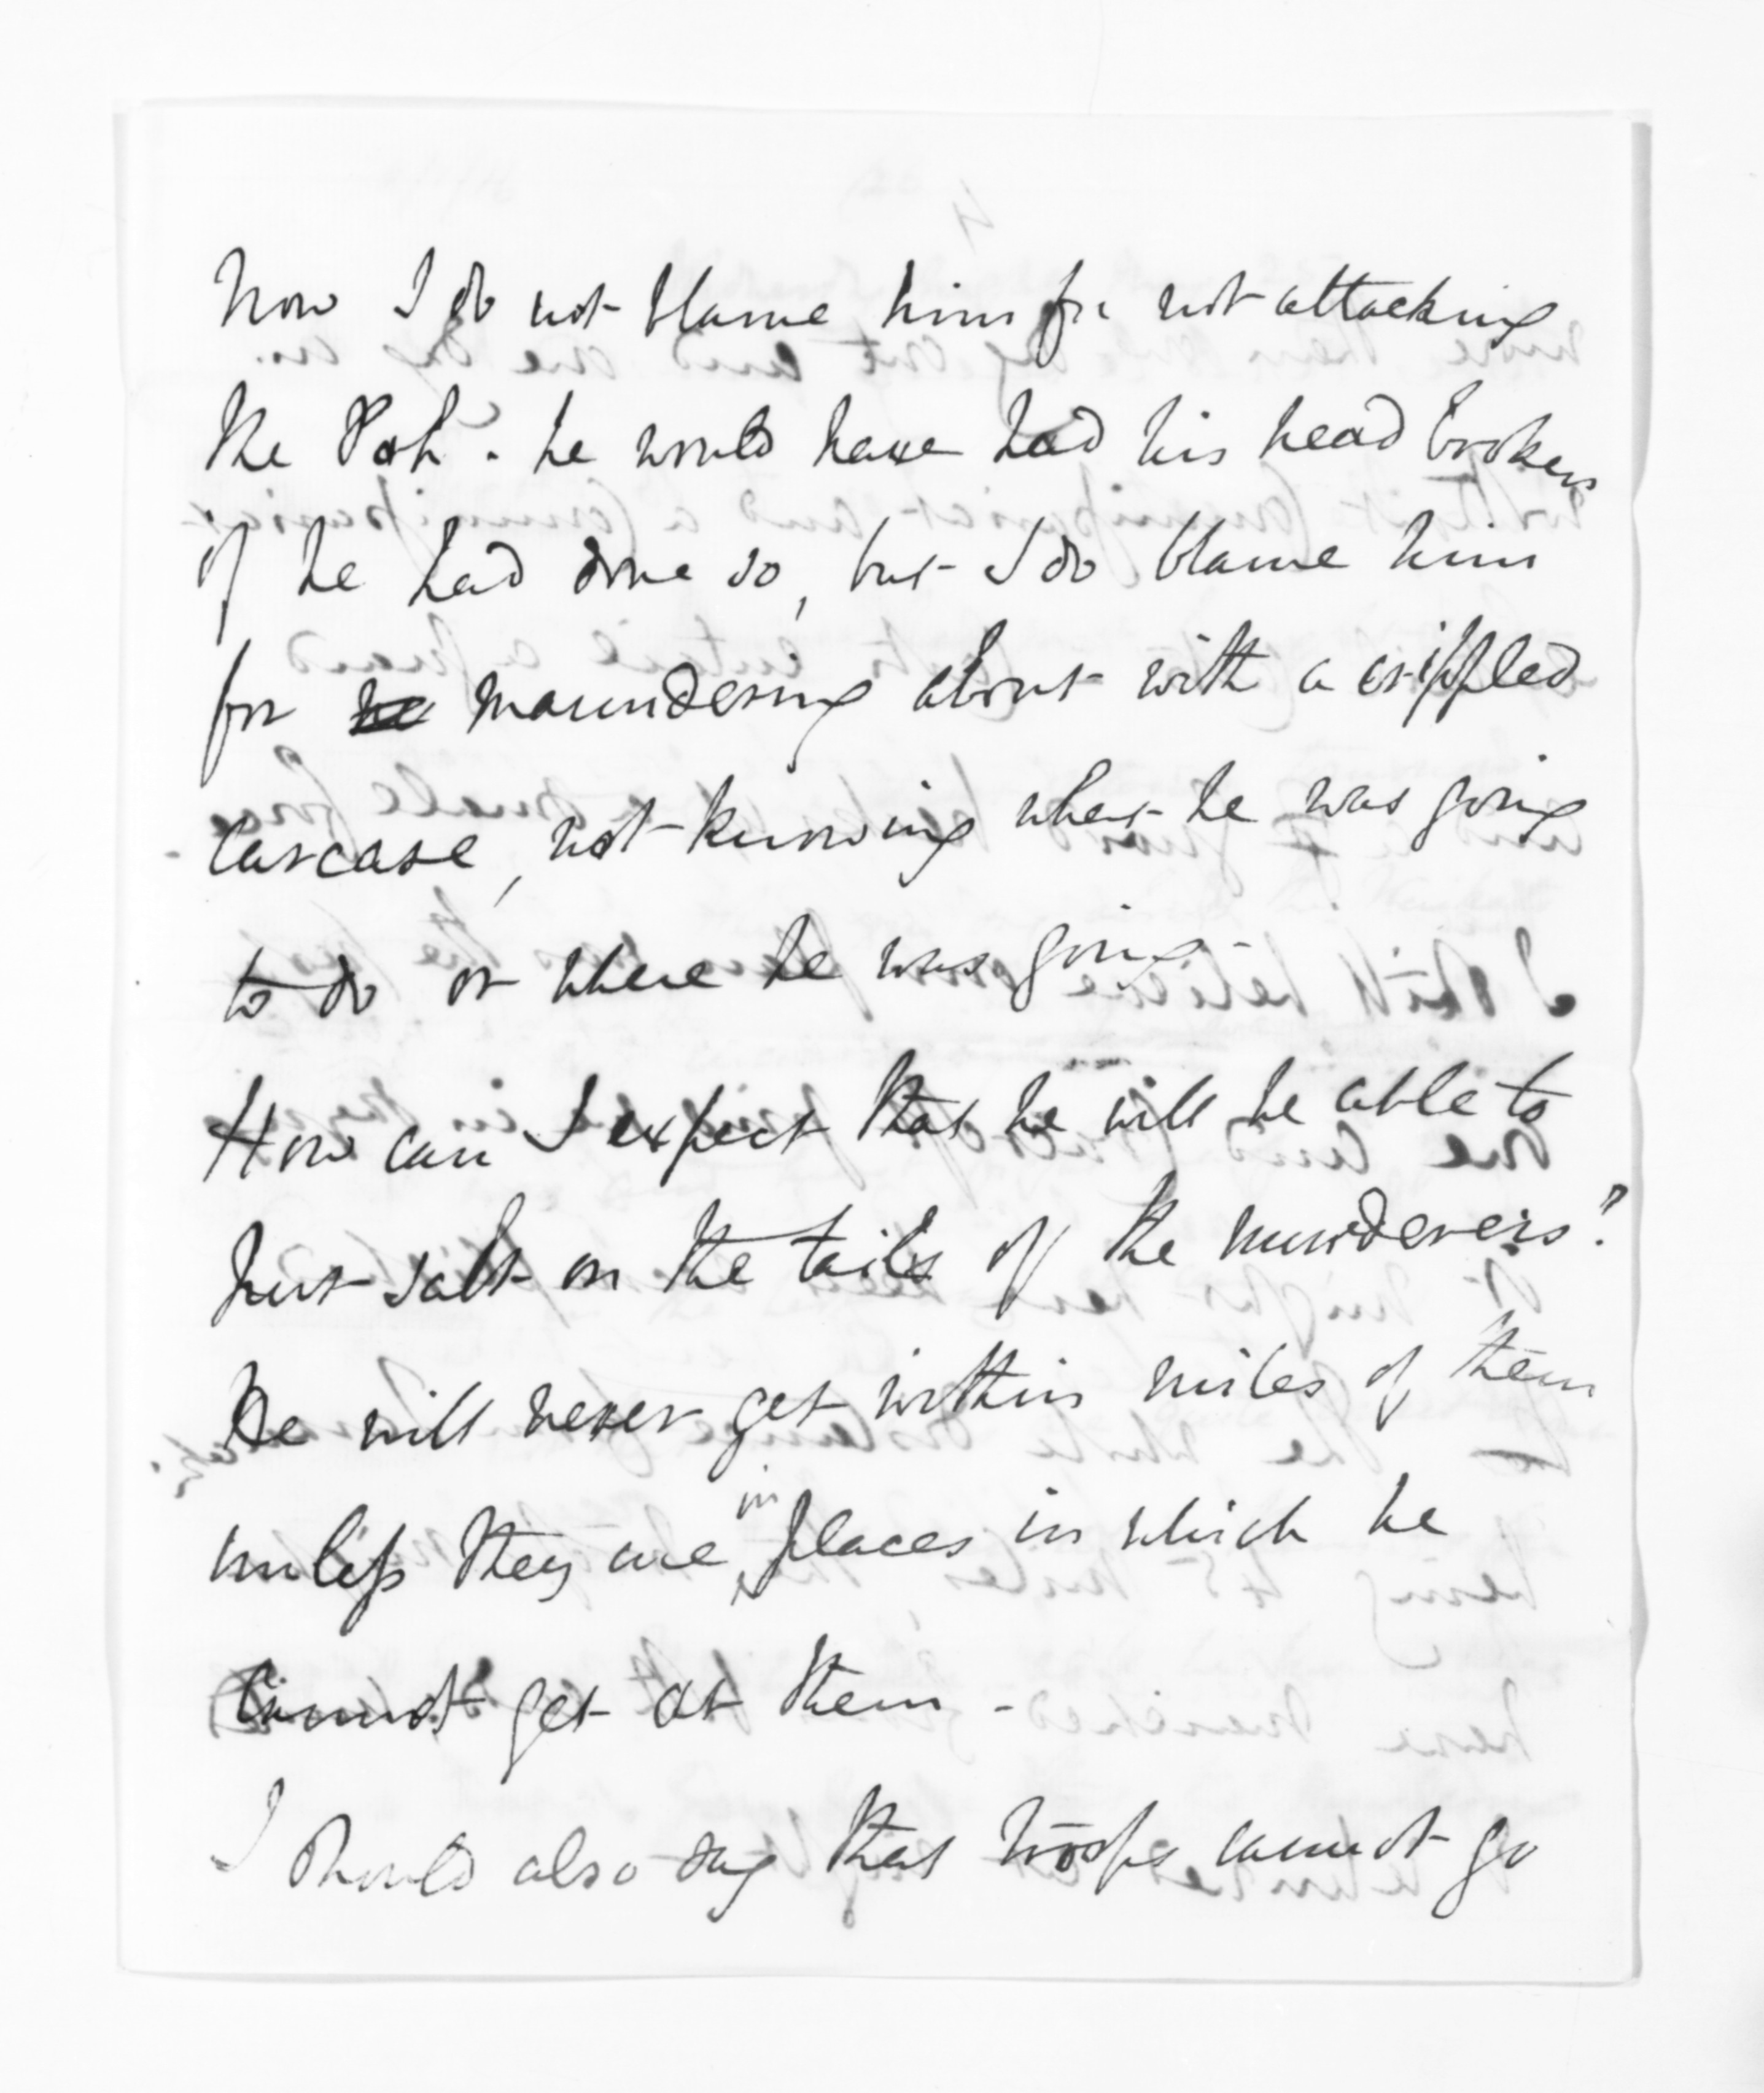 Now I do not blame him for not attacking
the Pah. he would have had his head broken
if he had done so, but I do blame him
for he maundering about with a crippled
carcase, not knowing what he was going
to do or where he was going -
How can I expect that he will be able to
put salt on the tails of the murderers?
He will never get within miles of them
unless they are in places in which he
cannot get at them -
I should also say that troops cannot go